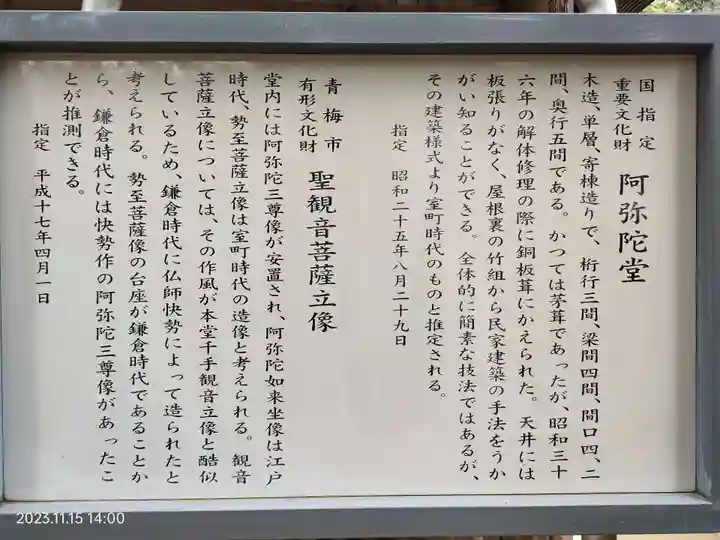 国指定
重要文化財
阿弥陀堂
木造、単層、寄棟造りで、桁行三間、梁間四間、間口四、二
間、奥行五間である。かつては茅葺であったが、昭和三十
六年の解体修理の際に銅板葺にかえられた。天井には
板張りがなく、屋根裏の竹組から民家建築の手法をうか
がい知ることができる。全体的に簡素な技法ではあるが、
その建築様式より室町時代のものと推定される。
指定 昭和二十五年八月二十九日
青梅市
有形文化財
聖観音菩薩立像
堂内には阿弥陀三尊像が安置され、阿弥陀如来坐像は江戸
時代、勢至菩薩立像は室町時代の造像と考えられる。観音
菩薩立像については、その作風が本堂千手観音立像と酷似
しているため、鎌倉時代に仏師快勢によって造られたと
考えられる。勢至菩薩像の台座が鎌倉時代であることか
ら、鎌倉時代には快勢作の阿弥陀三尊像があったこ
とが推測できる。
指定 平成十七年四月一日
2023.11.15 14:00